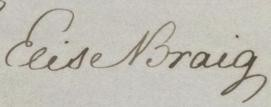 Elise Braig